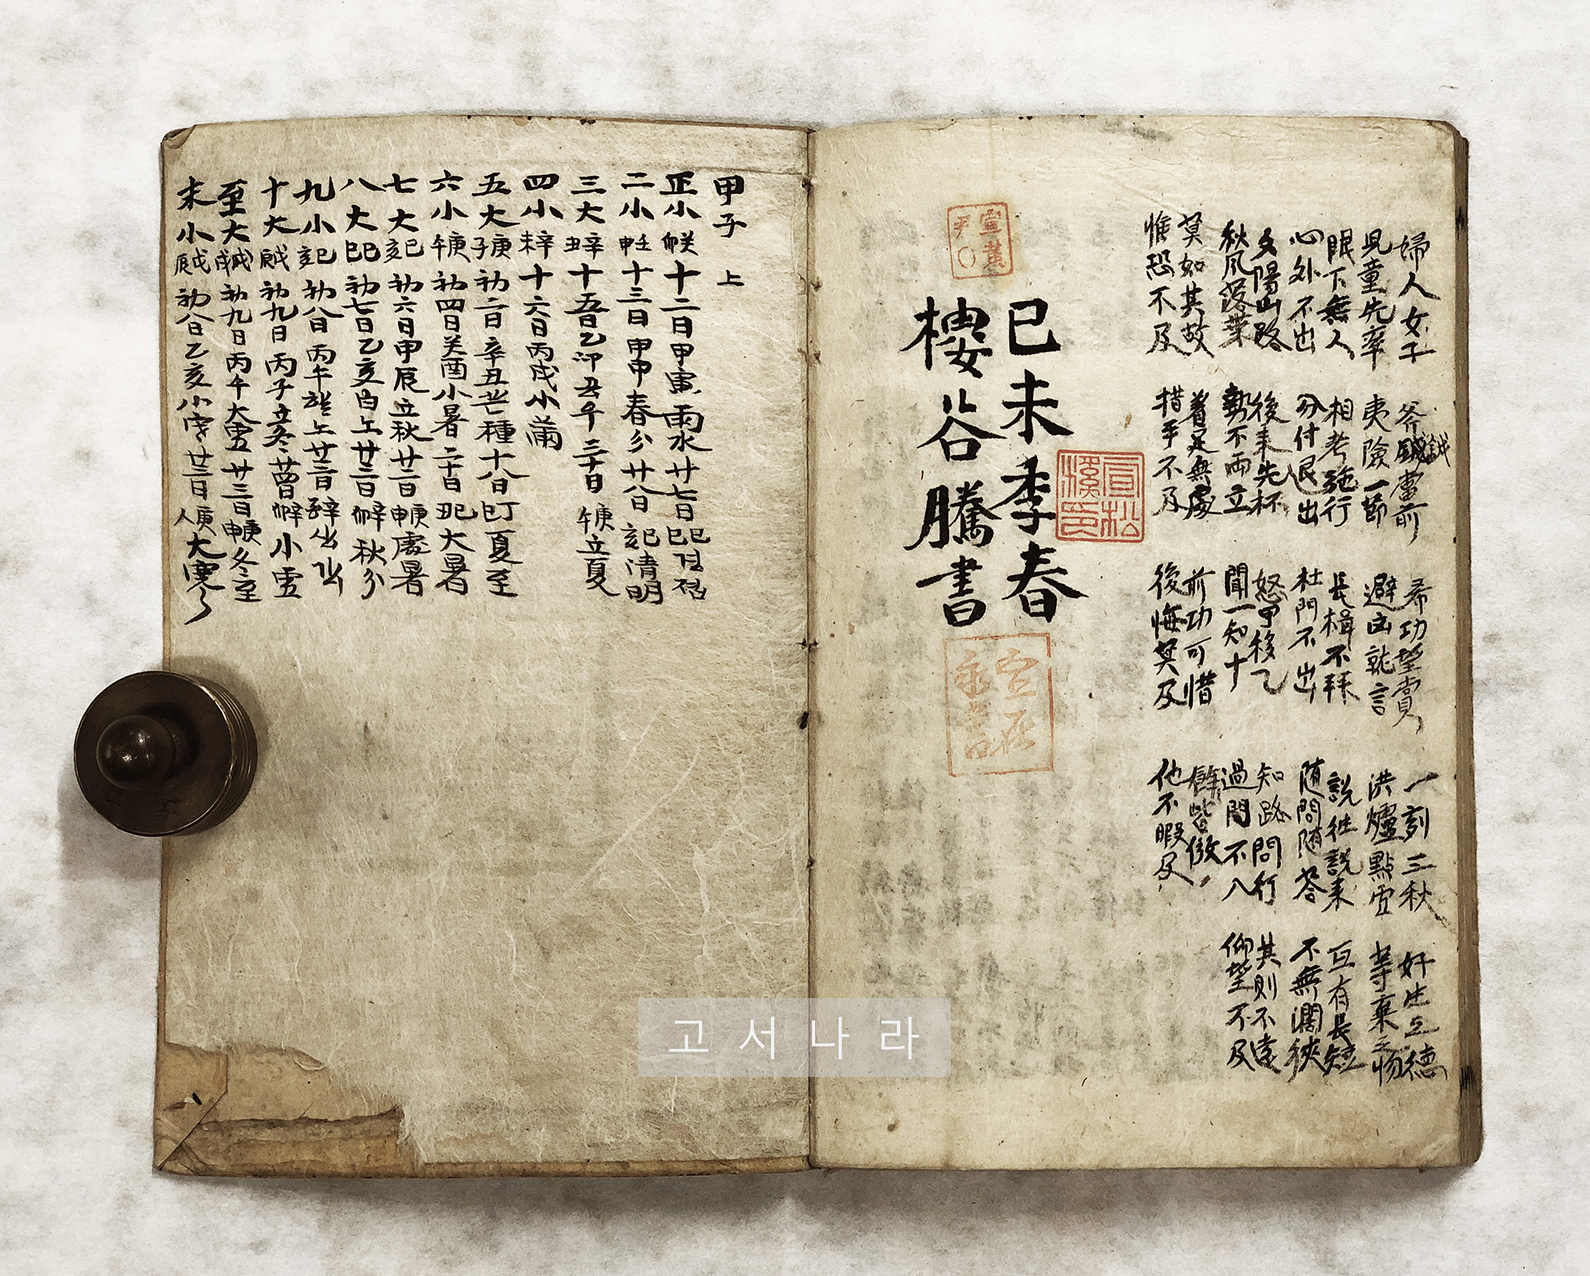 婦人女子 斧鉞當前 希功望賞 一刻三秋 好生之德
児童先率 夷險一節 避凶就吉 洪爐點雪 等棄之物
眼下無人 相考施行 長楫不拜 說徃說来 互有長短
心外不出 分付退出 杜門不出 随問随答 不無濶狹
夕陽山路 後来先杯 怒甲移乙 知路問行 其則不遠
秋風落葉 勢不両立 聞一知十 過門不入 仰望不及
莫如其故 着足無處 前功可惜 餘皆倣
惟恐不及 措手不及 後悔莫及 他不暇及
己未季春
樓谷騰書
甲子 上
正小 十二日甲寅雨水 廿七日己巳
二小 十三日甲申春分 廿八日己亥清明
三大 十五日乙卯 三十日 立夏
四小 十六日丙戌小滿
五大 初二日辛丑芒種 十八日丁巳夏至
六小 初四日癸酉小暑 二十日 大暑
七大 初六日甲辰立秋 廿二日 處暑
八大 初七日乙亥白上 廿三日 秋分
九小 初八日丙午 上 廿三日
十大 初九日丙子立冬 小雪
至大 初九日丙午大雪 廿三日 冬至
末小 初八日乙亥小寒 廿三日 大寒
고서나라